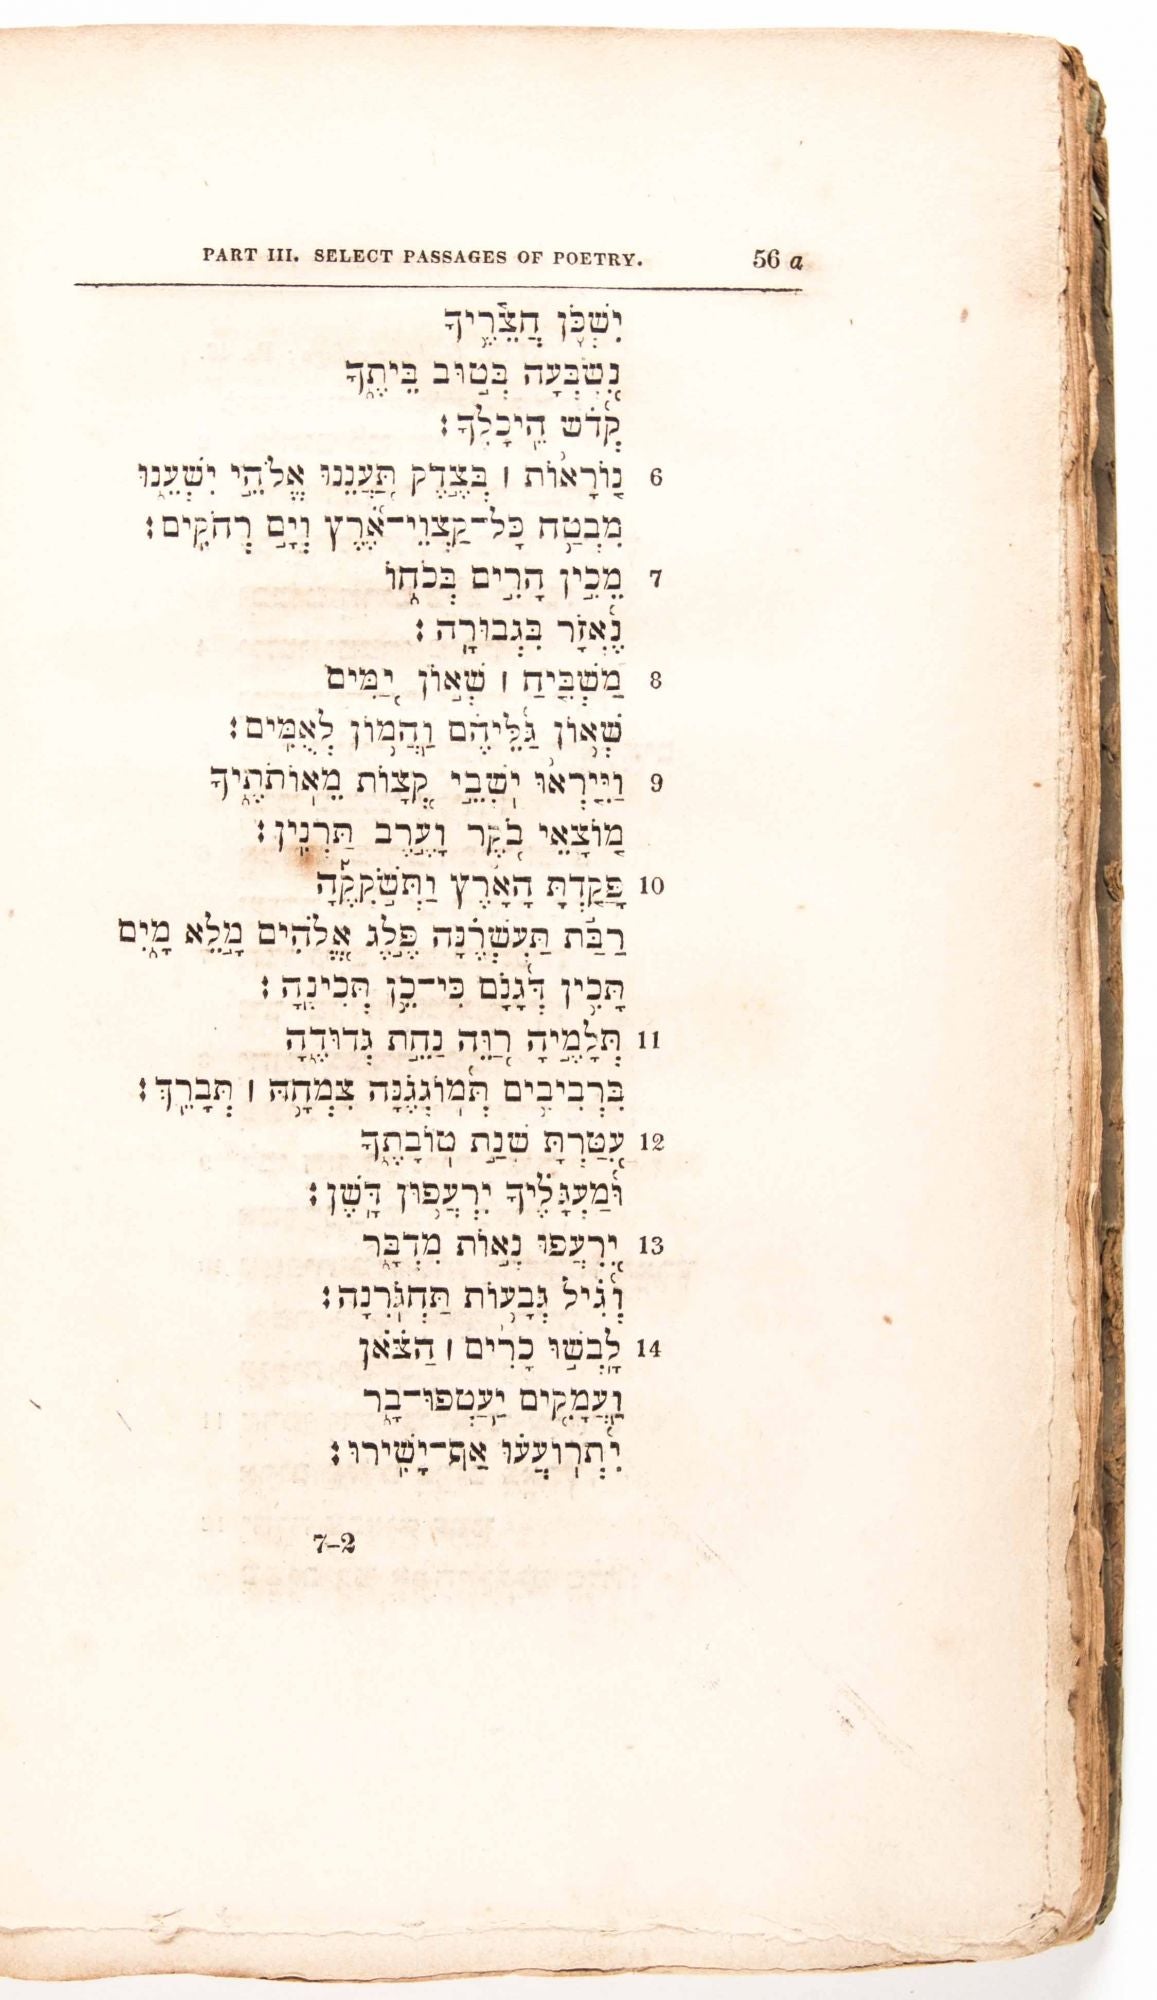 PART III. SELECT PASSAGES OF POETRY. 56 a
יִשְׁכֹּ֪ן חֲצֵ֫רֶ֥יךָ
נִ֭שְׂבְּעָה בְּט֣וּב בֵּיתֶ֑ךָ
קְ֝דֹ֗שׁ הֵיכָלֶֽךָ׃
6 נ֤וֹרָא֨וֹת ׀ בְּצֶ֣דֶק תַּ֭עֲנֵנוּ אֱלֹהֵ֣י יִשְׁעֵ֑נוּ
מִבְטָ֥ח כָּל־קַצְוֵי־אֶ֝֗רֶץ וְיָ֣ם רְחֹקִֽים׃
7 מֵכִ֣ין הָרִ֣ים בְּכֹח֑וֹ
נֶ֝אְזָ֗ר בִּגְבוּרָֽה׃
8 מַשְׁבִּ֤יחַ ׀ שְׁא֣וֹן יַ֭מִּים
שְׁא֥וֹן גַּלֵּיהֶ֗ם וַהֲמ֥וֹן לְאֻמִּֽים׃
9 וַיִּ֤ירְא֨וּ יֹשְׁבֵ֣י קְ֭צָוֹת מֵאוֹתֹתֶ֑יךָ
מ֤וֹצָאֵי בֹ֖קֶר וָעֶ֣רֶב תַּרְנִֽין׃
10 פָּקַ֥דְתָּ הָאָ֨רֶץ וַתְּשֹׁ֪קְקֶ֡הָ
רַבַּ֬ת תַּעְשְׁרֶ֗נָּה פֶּ֣לֶג אֱ֭לֹהִים מָ֣לֵא מָ֑יִם
תָּכִ֥ין דְּ֝גָנָ֗ם כִּי־כֵ֥ן תְּכִינֶֽהָ׃
11 תְּלָמֶ֣יהָ רַ֭וֵּה נַחֵ֣ת גְּדוּדֶ֑הָ
בִּרְבִיבִ֥ים תְּ֝מֹוגְגֶ֗נָּה צִמְחָ֥הּ ׀ תְּבָרֵֽךְ׃
12 עִ֭טַּרְתָּ שְׁנַ֣ת טוֹבָתֶ֑ךָ
וּ֝מַעְגָּלֶ֗יךָ יִרְעֲפ֥וּן דָּֽשֶׁן׃
13 יִ֭רְעֲפוּ נְא֣וֹת מִדְבָּ֑ר
וְ֝גִ֗יל גְּבָע֥וֹת תַּחְגֹּֽרְנָה׃
14 לָבְשׁ֬וּ כָרִ֨ים ׀ הַצֹּ֗אן
וַעֲמָקִ֥ים יַֽעַטְפוּ־בָ֑ר
יִ֝תְרוֹעֲע֗וּ אַף־יָשִֽׁירוּ׃
7–2